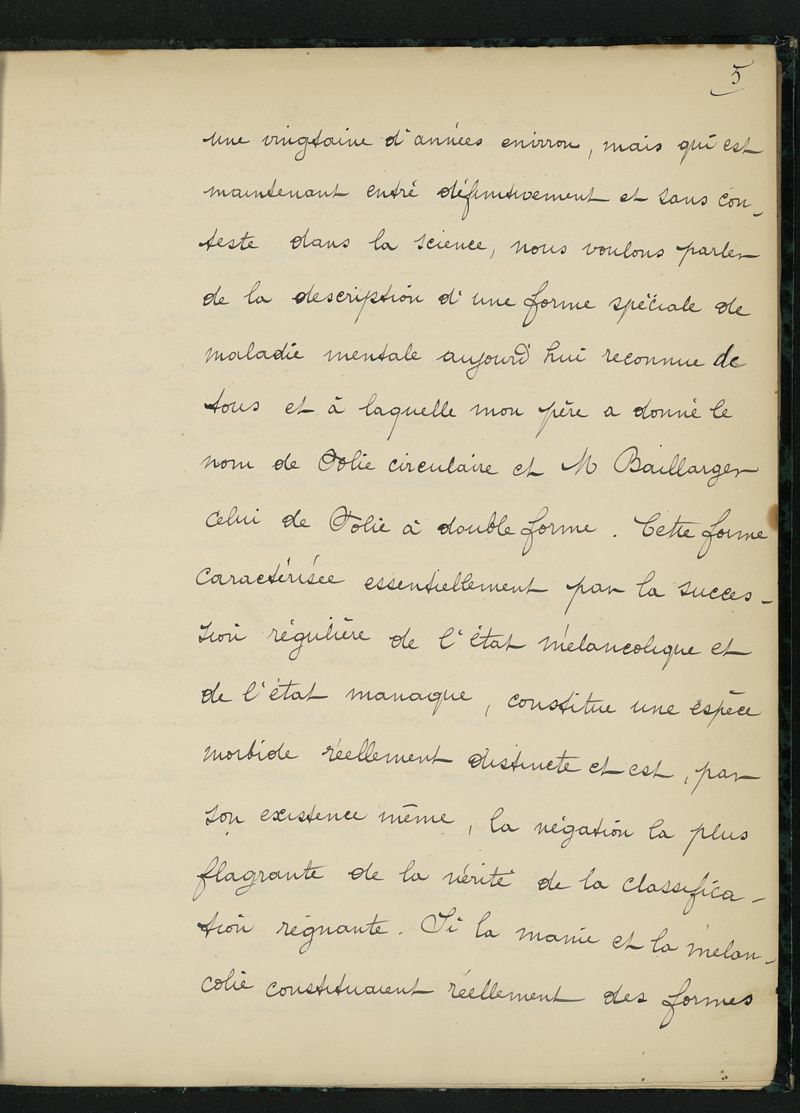 5
une vingtaine d'années environ, mais qui est
maintenant entré définitivement et sans con-
teste dans la science, nous voulons parler
de la description d'une forme spéciale de
maladie mentale aujourd'hui reconnue de
tous et à laquelle mon père a donné le
nom de Folie circulaire et M Baillarger
celui de Folie à double forme. Cette forme
caractérisée essentiellement par la succes-
sion régulière de l'état mélancolique et
de l'état maniaque, constitue une espèce
morbide réellement distincte et est, par
son existence même, la négation la plus
flagrante de la vérité de la classifica-
tion régnante. Si la manie et la mélan-
colie constituaient réellement des formes